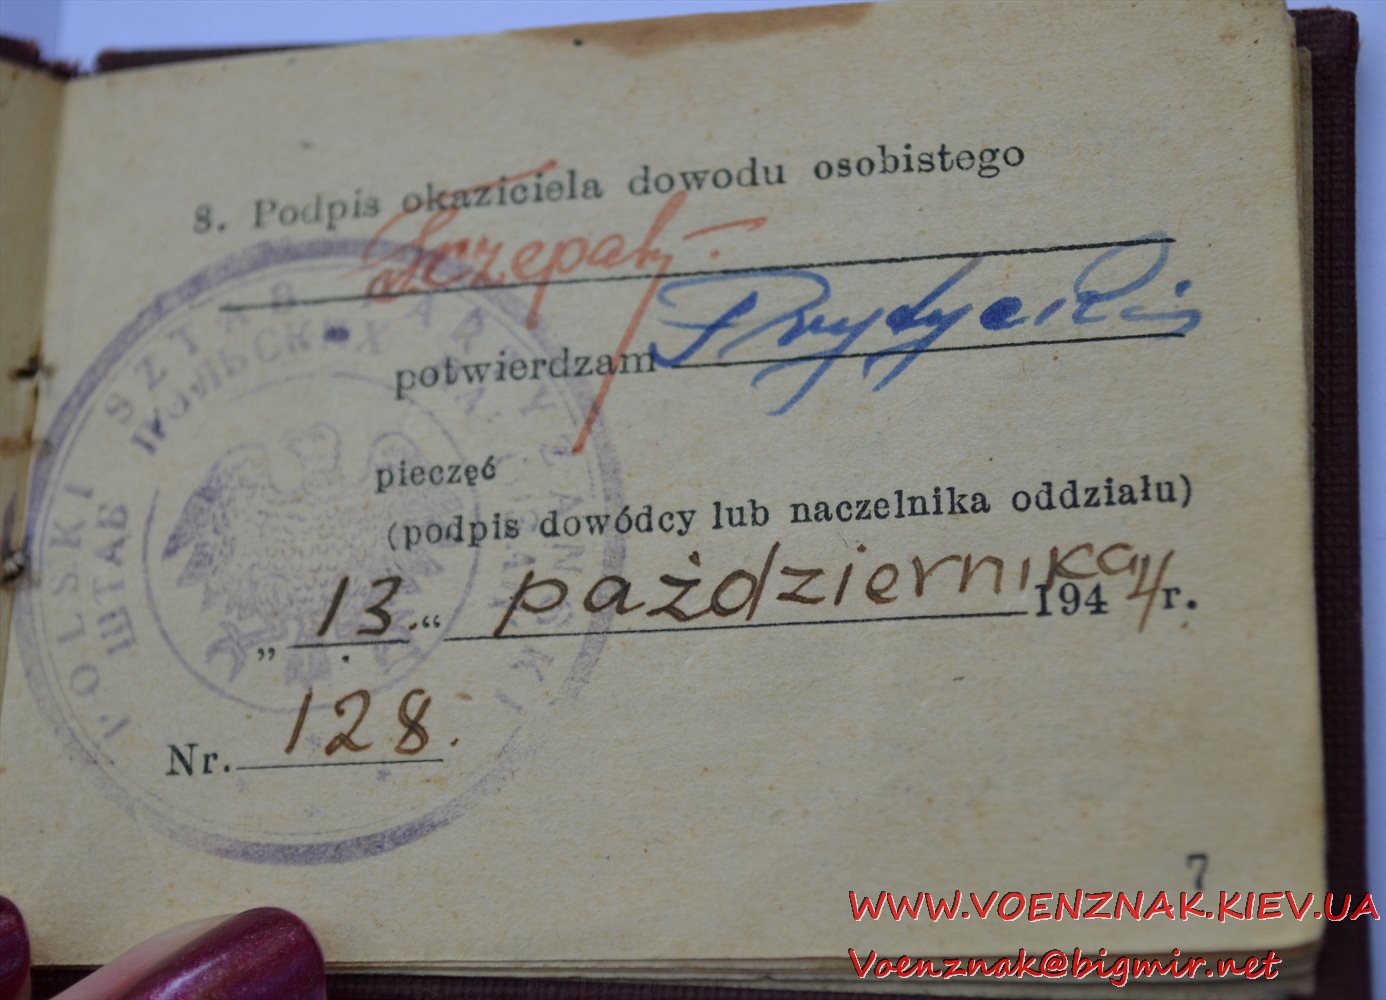 8. Podpis okaziciela dowodu osobistego
potwierdzam Prytycki
pieczęć
(podpis dowódcy lub naczelnika oddziału)
„ 13. “ października 1944 r.
Nr. 128.
POLSKI SZTAB PARTYZANCKI
ШТАБ
7
WWW.VOENZNAK.KIEV.UA
Voenznak@bigmir.net